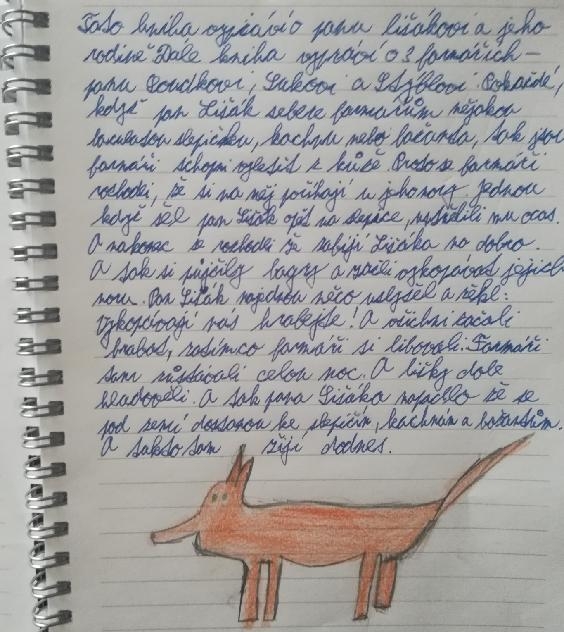 Tato kniha vypráví o panu lišákovi a jeho
rodině. Dále kniha vypráví o 3 farmářích –
panu Boudkovi, Sukovi a Stýblovi. Pokaždé,
když pan Lišák sebere farmářům nějakou
slepičku, kachnu nebo bažanta, tak jsou
farmáři schopni vyletět z kůže. Proto se farmáři
rozhodli, že si na něj počíhají u jeho nory. Jednou
když šel pan Lišák opět na slepice, ustřelili mu ocas.
A nakonec se rozhodli že zabijí Lišáka na dobro.
A tak si půjčily bagry a začli vykopávat jejich
noru. Pan Lišák najednou něco uslyšel a řekl:
Vykopávají nás hrabejte! A všichni začali
hrabat, zatímco farmáři si libovali. Farmáři
tam zůstávali celou noc. A lišky dole
hladověli. A tak pana Lišáka napadlo že se
pod zemí dostanou ke slepicím, kachnám a bažantům.
A takto tam žijí dodnes.